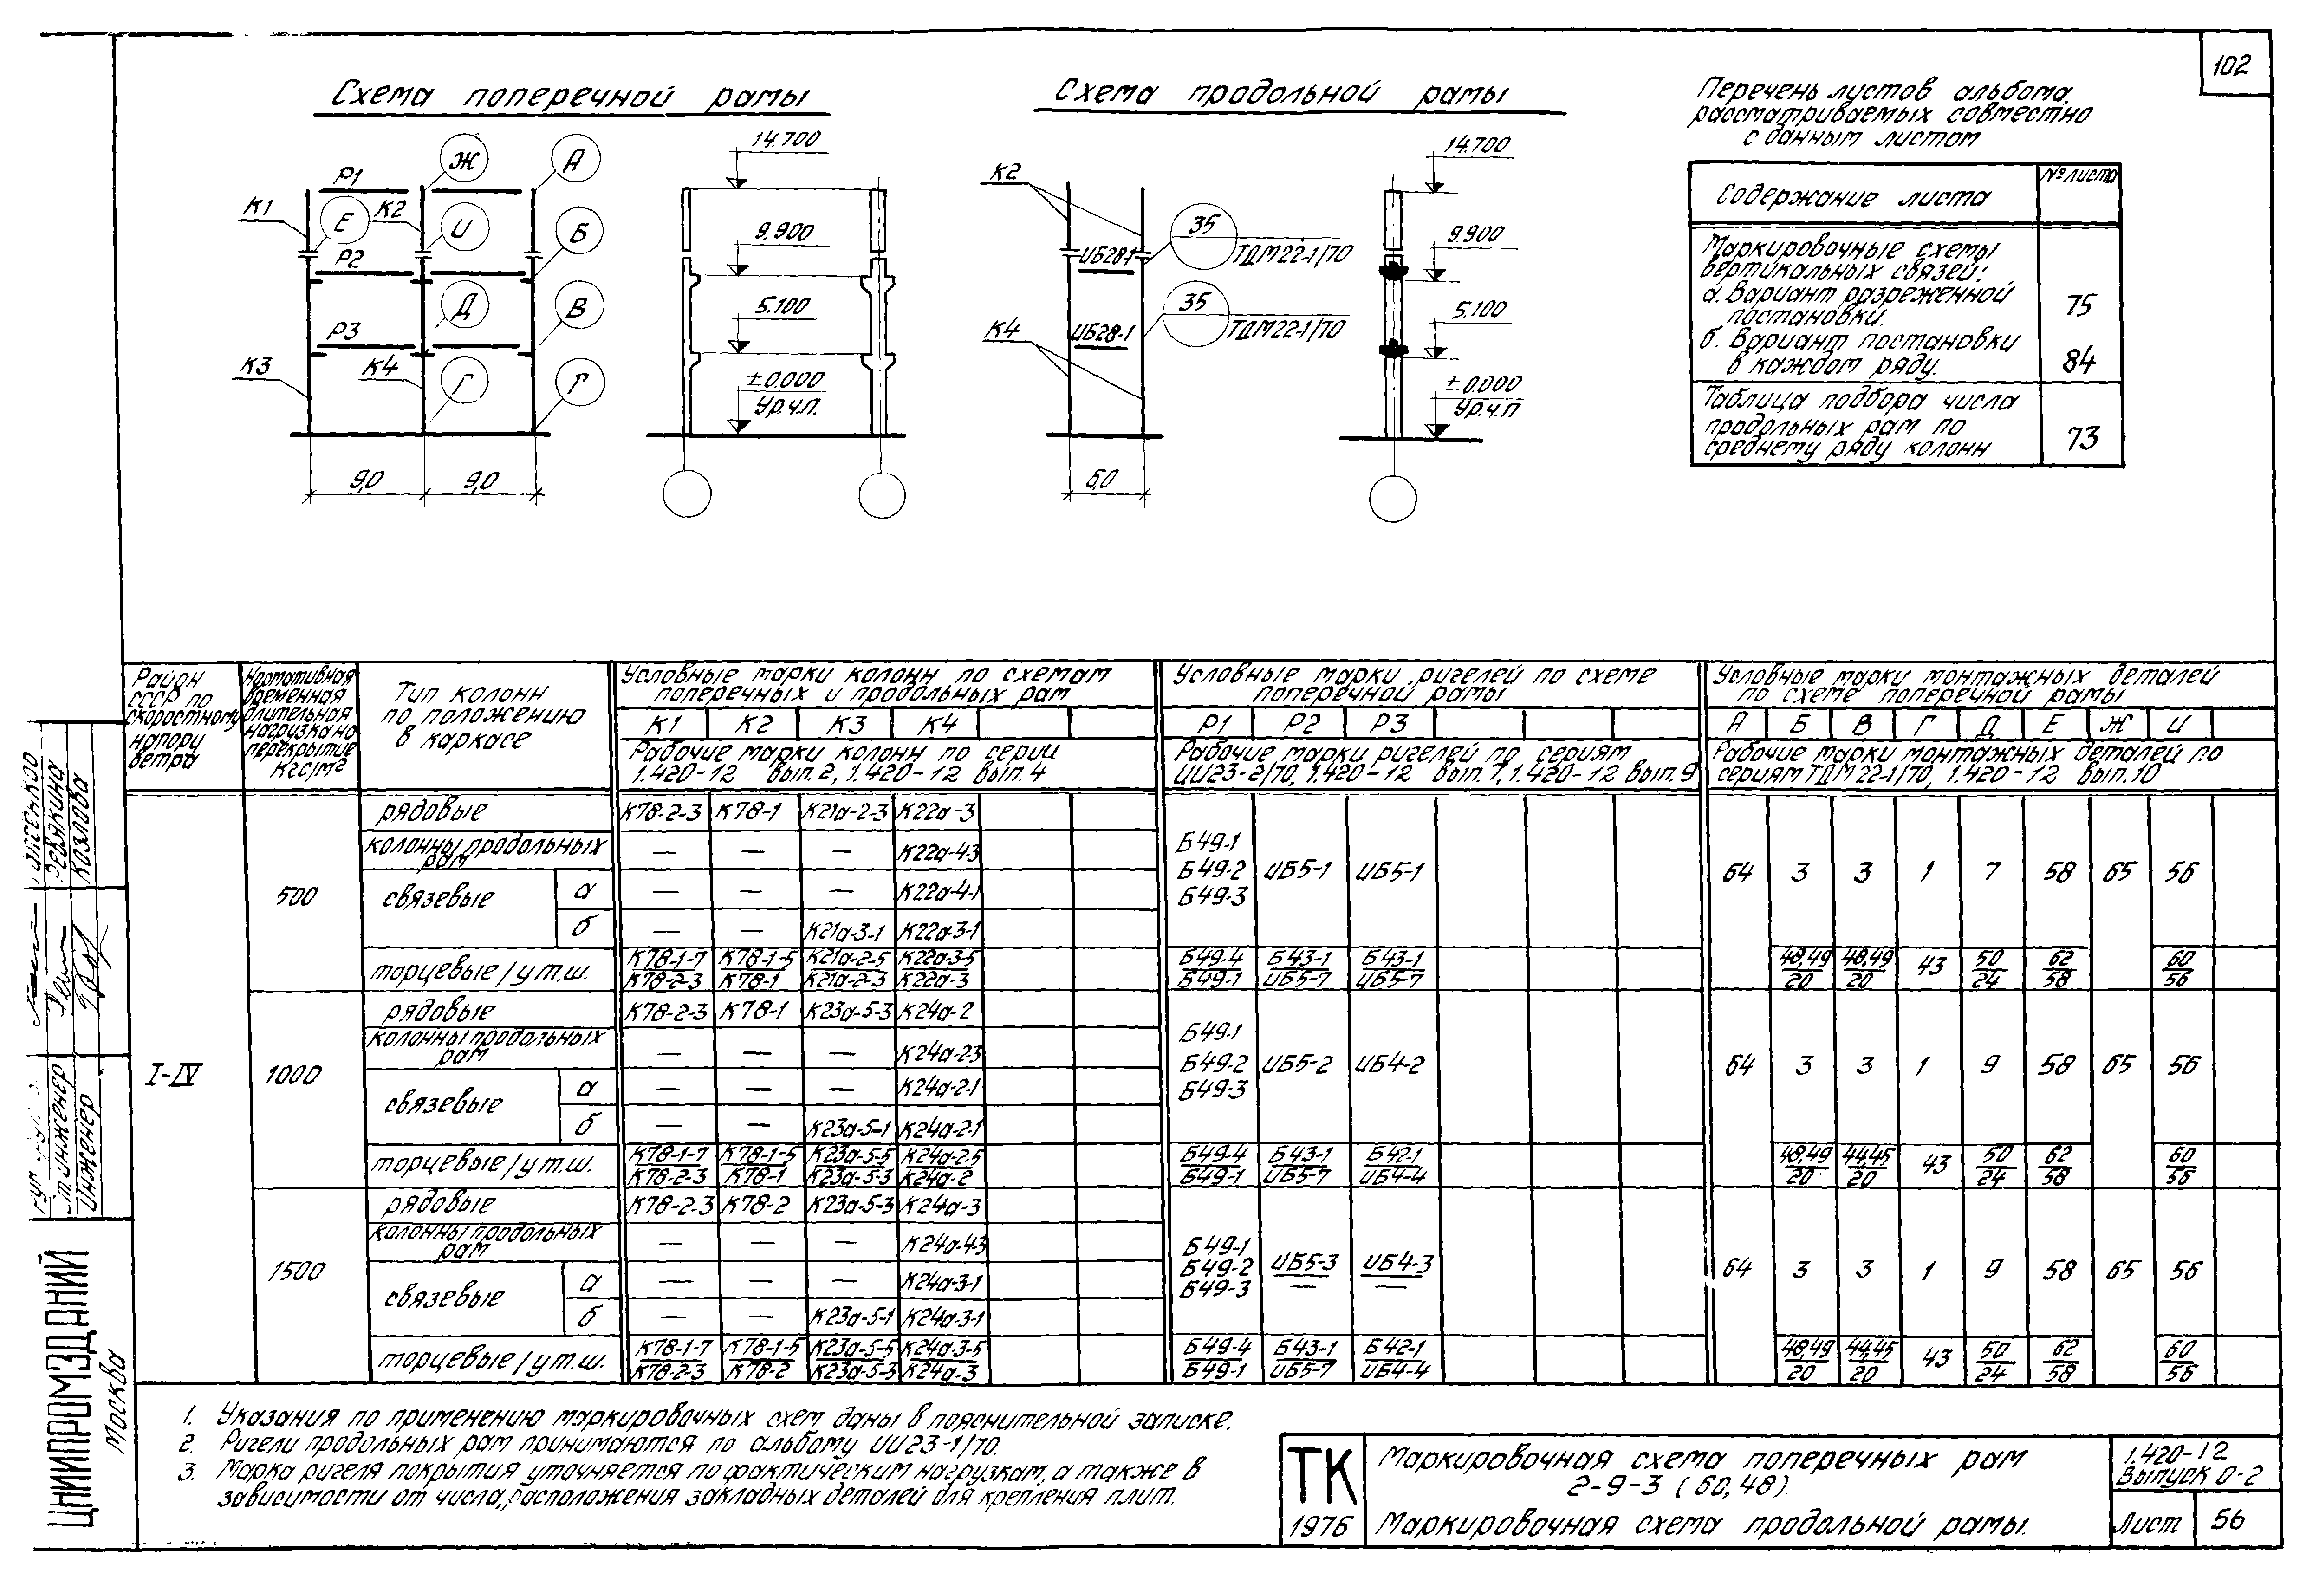 102
Схема поперечной рамы
Схема продольной рамы
Перечень листов альбома,
рассматриваемых совместно
с данным листом
Содержание листа № листа
Маркировочные схемы
вертикальных связей:
а. Вариант разреженной
постановки. 75
б. Вариант постановки
в каждом ряду. 84
Таблица подбора числа
продольных рам по
среднему ряду колонн 73
Ж А
Р1
К1 Е К2 И Б
Р2
Д В
Р3
К3 К4 Г Г
9,0 9,0
14.700
9.900
5.100
±0.000
Ур.ч.п.
К2
35
ИБ28-1 ТДМ22-1/70
35
К4 ИБ28-1 ТДМ22-1/70
6,0
14.700
9.900
5.100
±0.000
Ур.ч.п
Район
СССР по
скоростному
напору
ветра
Нормативная
временная
длительная
нагрузка на
перекрытие
кгс/м2
Тип колонн
по положению
в каркасе
Условные марки колонн по схемам
поперечных и продольных рам
К1 К2 К3 К4
Рабочие марки колонн по серии
1.420-12 вып.2, 1.420-12 вып.4
Условные марки ригелей по схеме
поперечной рамы
Р1 Р2 Р3
Рабочие марки ригелей по сериям
ИИ23-2/70, 1.420-12 вып.7, 1.420-12 вып.9
Условные марки монтажных деталей
по схеме поперечной рамы
А Б В Г Д Е Ж И
Рабочие марки монтажных деталей по
сериям ТДМ22-1/70, 1.420-12 вып.10
I-IV
500
рядовые К78-2-3 К78-1 К21а-2-3 К22а-3
колонны продольных
рам — — — К22а-4-3
связевые а — — — К22а-4-1
б — — К21а-3-1 К22а-3-1
Б49-1
Б49-2 ИБ5-1 ИБ5-1
Б49-3
64 3 3 1 7 58 65 56
торцевые/у т.ш. К78-1-7 К78-1-5 К21а-2-5 К22а-3-5 Б49-4 Б43-1 Б43-1 48,49 48,49 43 50 62 60
К78-2-3 К78-1 К21а-2-3 К22а-3 Б49-1 ИБ5-7 ИБ5-7 20 20 24 58 56
1000
рядовые К78-2-3 К78-1 К23а-5-3 К24а-2
колонны продольных
рам — — — К24а-2-3
связевые а — — — К24а-2-1
б — — К23а-5-1 К24а-2-1
Б49-1
Б49-2 ИБ5-2 ИБ4-2
Б49-3
64 3 3 1 9 58 65 56
торцевые/у т.ш. К78-1-7 К78-1-5 К23а-5-5 К24а-2-5 Б49-4 Б43-1 Б42-1 48,49 44,45 43 50 62 60
К78-2-3 К78-1 К23а-5-3 К24а-2 Б49-1 ИБ5-7 ИБ4-4 20 20 24 58 56
1500
рядовые К78-2-3 К78-2 К23а-5-3 К24а-3
колонны продольных
рам — — — К24а-4-3
связевые а — — — К24а-3-1
б — — К23а-5-1 К24а-3-1
Б49-1
Б49-2 ИБ5-3 ИБ4-3
Б49-3 — —
64 3 3 1 9 58 65 56
торцевые/у т.ш. К78-1-7 К78-1-5 К23а-5-5 К24а-3-5 Б49-4 Б43-1 Б42-1 48,49 44,45 43 50 62 60
К78-2-3 К78-2 К23а-5-3 К24а-3 Б49-1 ИБ5-7 ИБ4-4 20 20 24 58 56
1. Указания по применению маркировочных схем даны в пояснительной записке.
2. Ригели продольных рам принимаются по альбому ИИ23-1/70.
3. Марка ригеля покрытия уточняется по фактическим нагрузкам, а также в
зависимости от числа, расположения закладных деталей для крепления плит.
ТК
1976
Маркировочная схема поперечных рам
2-9-3 (60,48).
Маркировочная схема продольной рамы.
1.420-12
Выпуск 0-2
Лист 56
ЦНИИПРОМЗДАНИЙ
Москва
ст. инженер
Инженер
Козлова